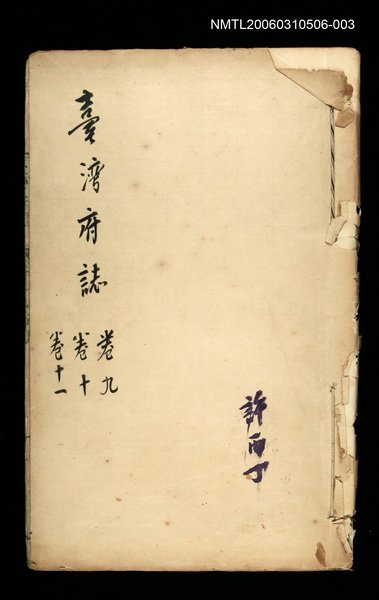 NMTL20060310506-003
臺湾府誌
卷九
卷十
卷十一
許丙丁